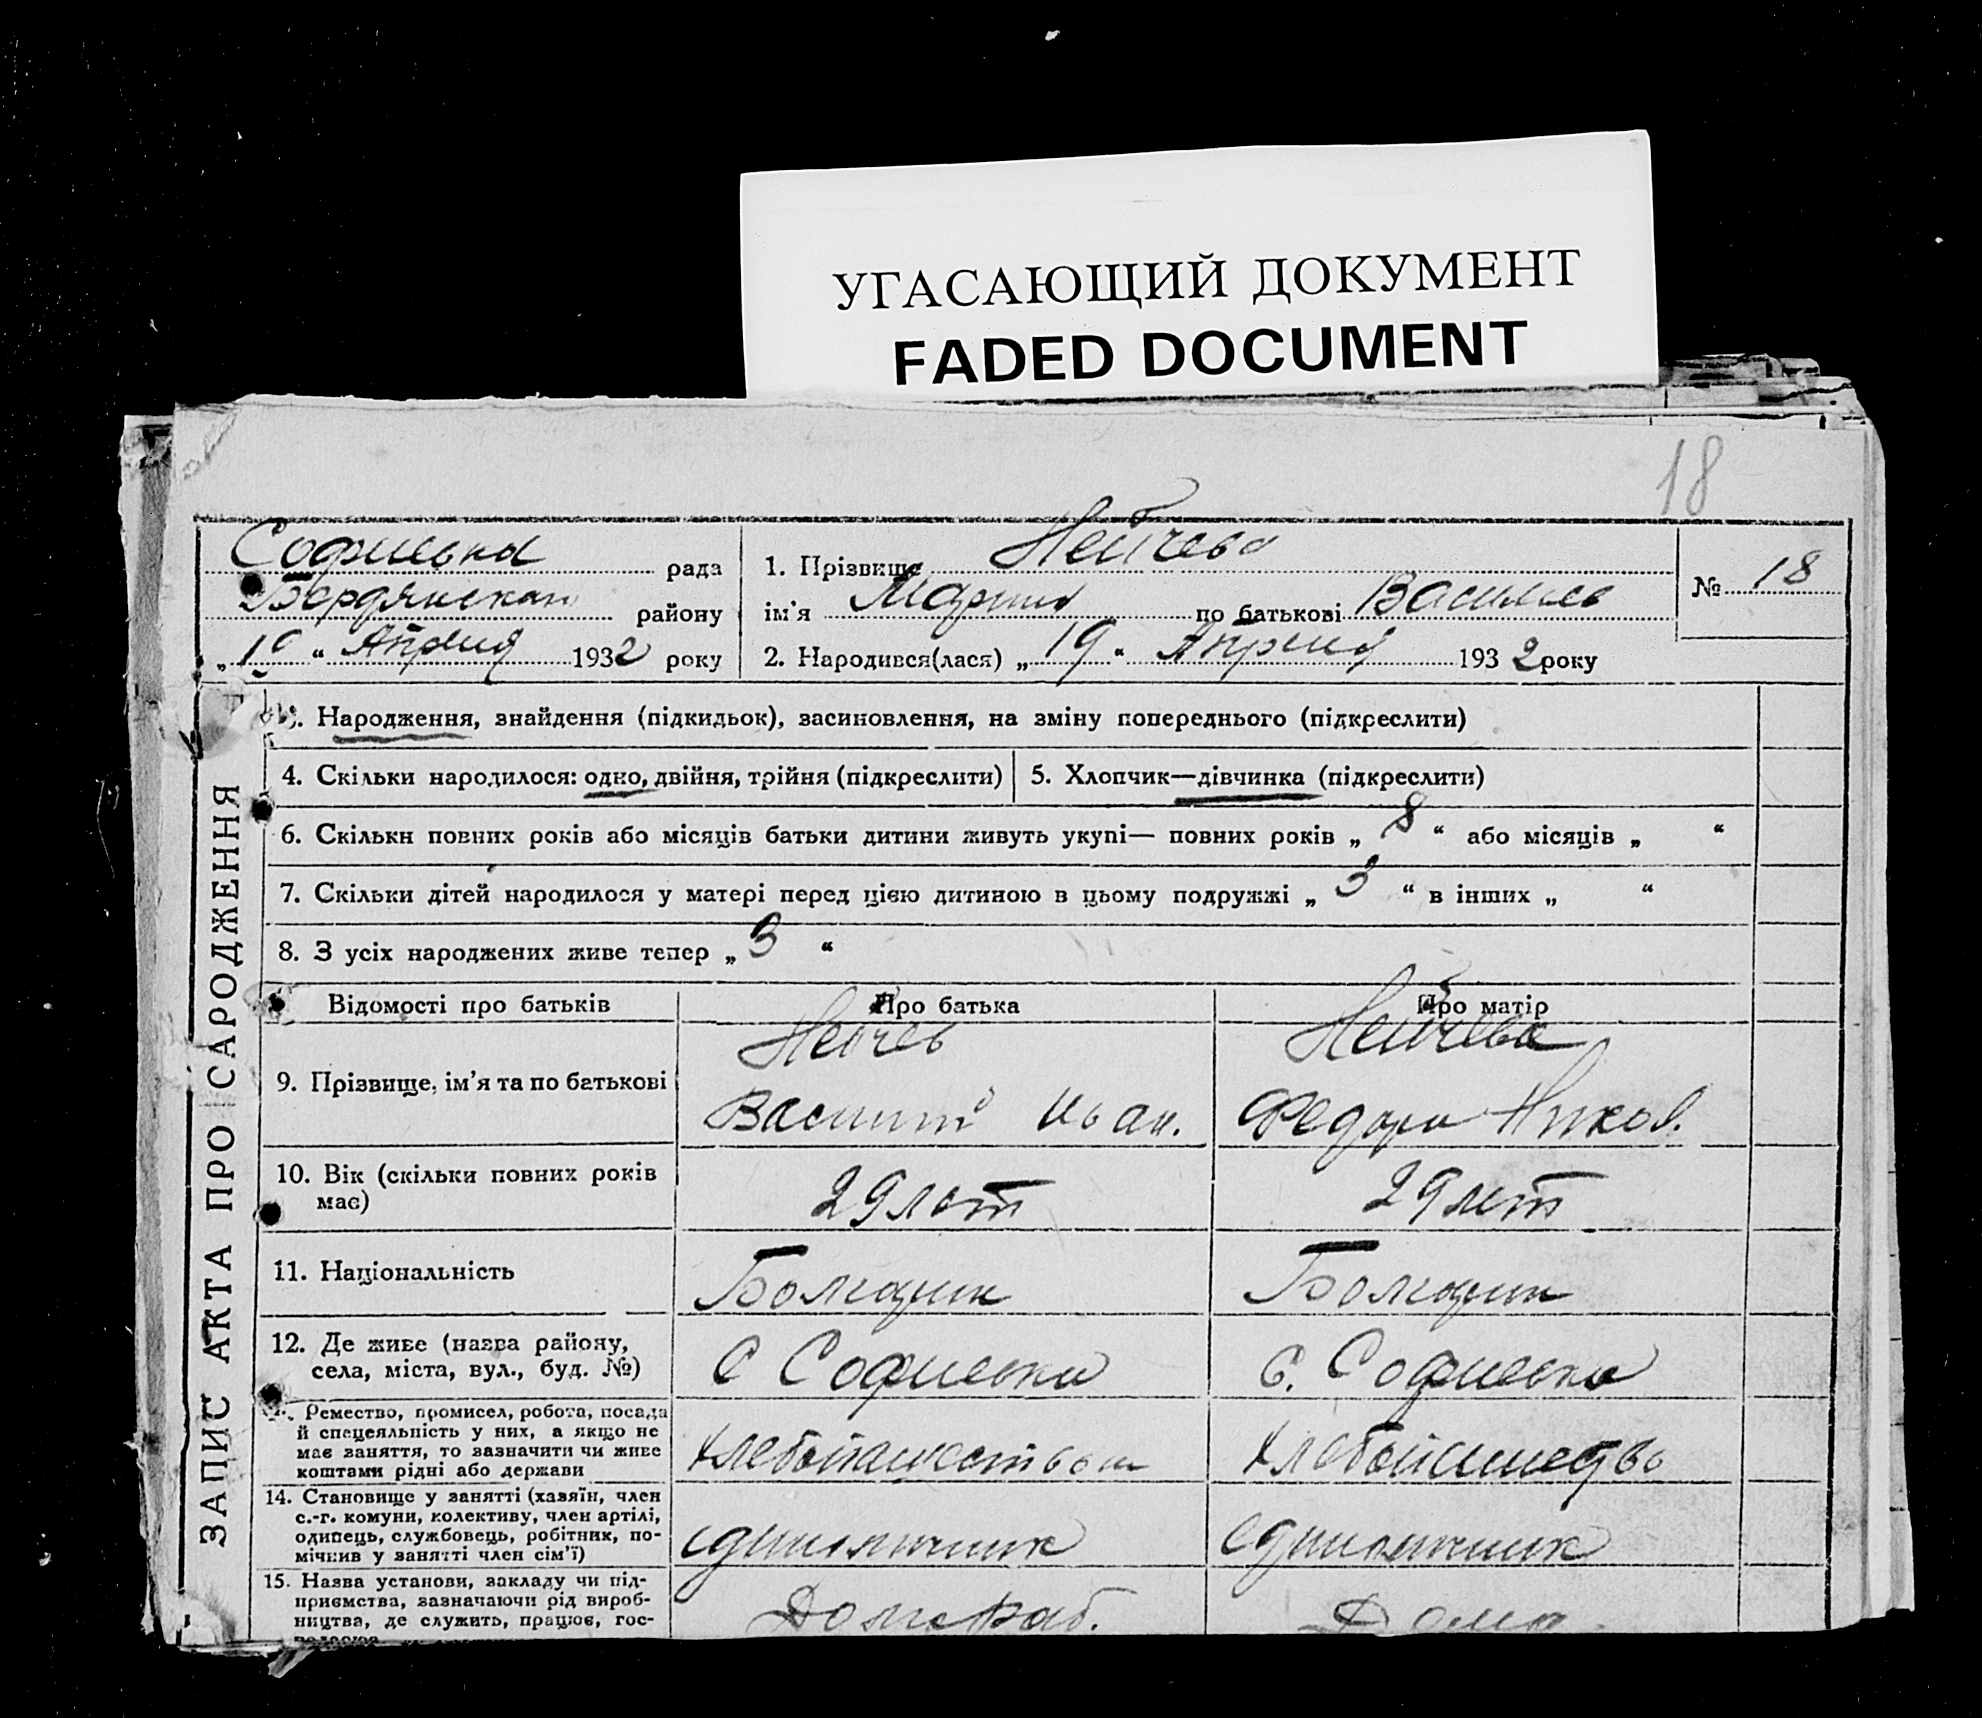 УГАСАЮЩИЙ ДОКУМЕНТ
FADED DOCUMENT
18
Софиевка рада
Бердянскан району
„ 19 “ Апреля 1932 року
1. Прізвище Нейчева
ім'я Мария по батькові Василев
2. Народився(лася) „ 19 “ Апреля 1932 року
№ 18
ЗАПИС АКТА ПРО НАРОДЖЕННЯ
3. Народження, знайдення (підкидьок), засиновлення, на зміну попереднього (підкреслити)
4. Скільки народилося: одно, двійня, трійня (підкреслити) 5. Хлопчик—дівчинка (підкреслити)
6. Скільки повних років або місяців батьки дитини живуть укупі— повних років „ 8 “ або місяців „ “
7. Скільки дітей народилося у матері перед цією дитиною в цьому подружжі „ 3 “ в інших „ “
8. З усіх народжених живе тепер „ 3 “
Відомості про батьків Про батька Про матір
9. Прізвище, ім'я та по батькові
Нейчев
Василий Иван.
Нейчева
Федора Никол.
10. Вік (скільки повних років
має)
29 лет
29 лет
11. Національність
Болгарин
Болгарин
12. Де живе (назва району,
села, міста, вул., буд. №)
С Софиевка
с. Софиевка
Ремество, промисел, робота, посада
й спецеяльність у них, а якщо не
має заняття, то зазначити чи живе
коштами рідні або держави
Хлебопашеством
Хлебопашество
14. Становище у занятті (хазяїн, член
с.-г. комуни, колективу, член артілі,
одипець, службовець, робітник, по-
мічнив у занятті член сім'ї)
единоличник
единоличник
15. Назва установи, закладу чи під-
приємства, зазначаючи рід вироб-
ництва, де служить, працює, гос-
Дома